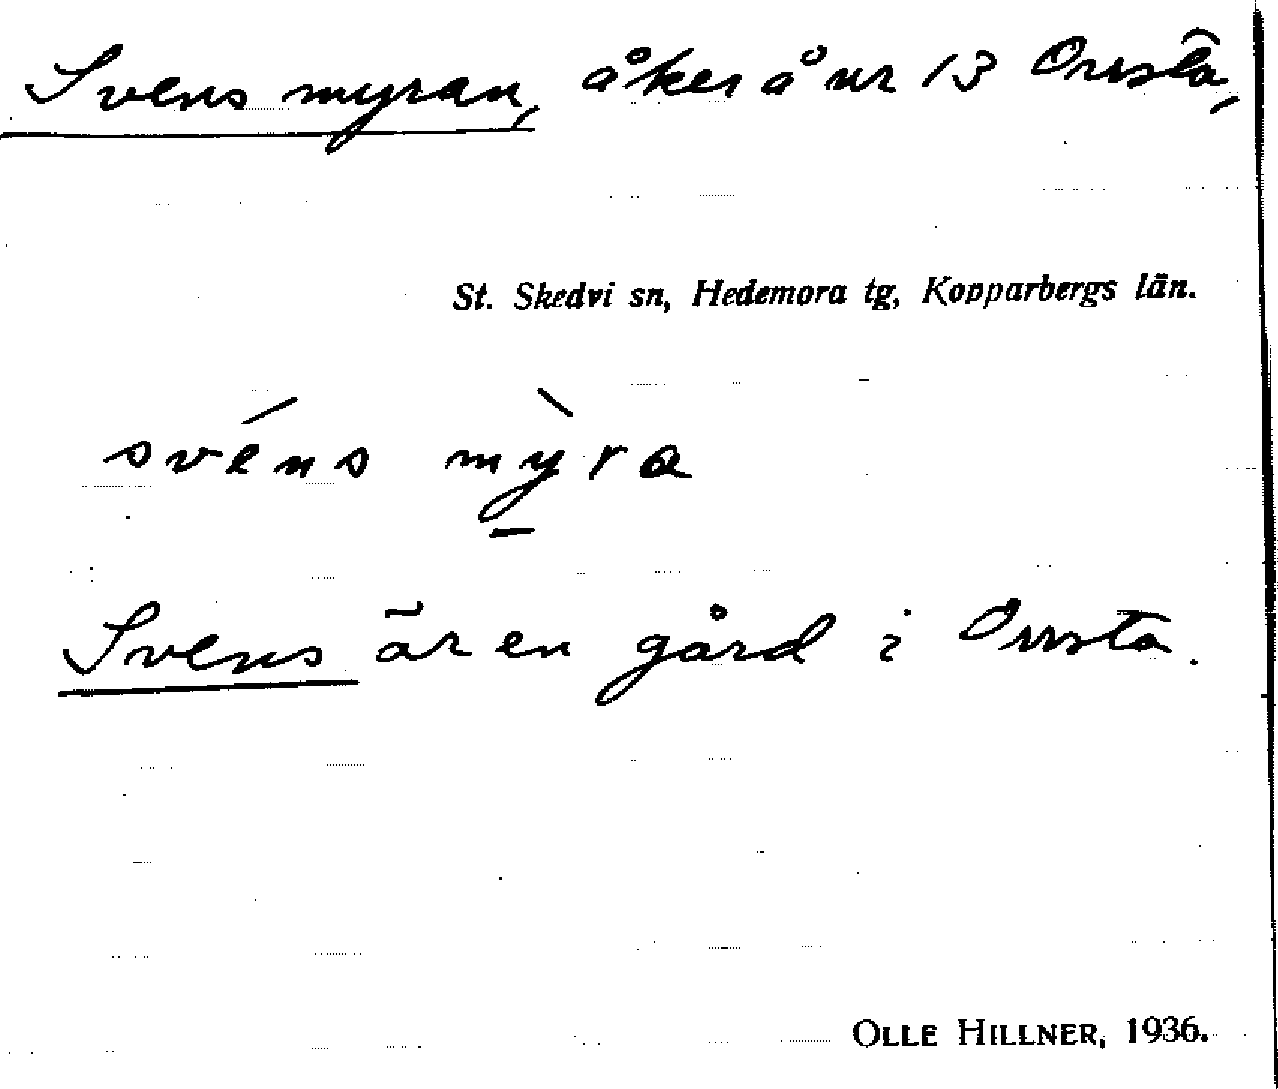 Svens myran, åker å nr 13 Orrsta,
St. Skedvi sn, Hedemora tg, Kopparbergs län.
svéns mỳra
Svens är en gård i Orrsta.
OLLE HILLNER, 1936.